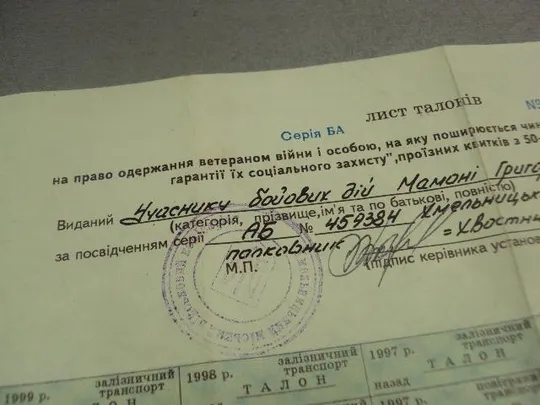 лист талонів
Серія БА №
на право одержання ветераном війни і особою, на яку поширюється чин
гарантії їх соціального захисту", проїзних квитків з 50-
Виданий Учаснику бойових дій Мамоні Григо
(категорія, прізвище, ім'я та по батькові, повністю)
за посвідченням серії АБ № 459384 Хмельницьк
полковник =Хвостни
М.П. (підпис керівника установ
1999 р. залізничний транспорт
ТАЛОН
1998 р. залізничний транспорт
ТАЛОН
1997 р. залізничний транспорт
ТАЛОН
назад
1997
повітряни
трансп